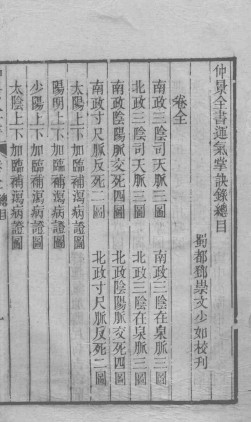 仲景全書運氣掌訣錄總目
蜀都鄧崇文少如校刊
卷全
南政三陰司天脈三圖
南政三陰在泉脈三圖
北政三陰司天脈三圖
北政三陰在泉脈三圖
南政陰陽脈交死四圖
北政陰陽脈交死四圖
南政寸尺脈反死二圖
北政寸尺脈反死二圖
太陽上下加臨補瀉病證圖
陽明上下加臨補瀉病證圖
少陽上下加臨補瀉病證圖
太陰上下加臨補瀉病證圖
總目